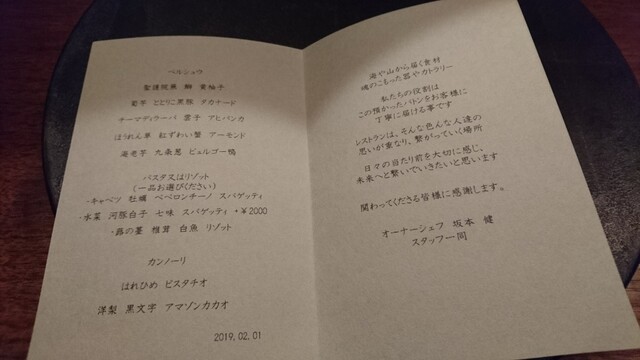 ペルシュウ
聖護院蕪 鰤 黄柚子
菊芋 ととりこ黒豚 タカナード
チーマディラーパ 雲子 アヒパンカ
ほうれん草 松ずわい蟹 アーモンド
海老芋 九条葱 ビュルゴー鴨
パスタ又はリゾット
(一品お選びください)
・キャベツ 牡蠣 ペペロンチーノ スパゲッティ
・水菜 河豚白子 七味 スパゲッティ ・+￥2000
・蕗の薹 椎茸 白魚 リゾット
カンノーリ
はれひめ ピスタチオ
洋梨 黒文字 アマゾンカカオ
2019.02.01
海や山から届く食材
魂のこもった器やカトラリー
私たちの役割は
この預かったバトンをお客様に
丁寧に届ける事です
レストランは、そんな色んな人達の
思いが重なり、繋がっていく場所
日々の当たり前を大切に感じ、
未来へと繋いでいきたいと思います
関わってくださる皆様に感謝します。
オーナーシェフ 坂本 健
スタッフ一同